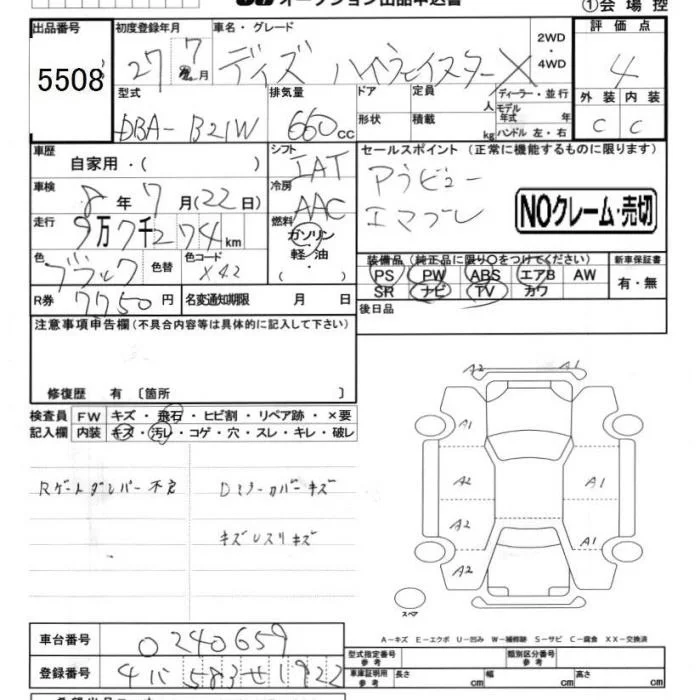 オークション出品申込書
①会場控
出品番号 初度登録年月 車名・グレード 2WD・4WD 評価点
5508 27 7月 デイズ ハイウェイスターX 4
型式 排気量 ドア 定員 人 ディーラー・並行 外装 内装
DBA-B21W 660cc 形状 積載 kg モデル年式 年 ハンドル 左・右 C C
車歴 自家用・( ) シフト IAT セールスポイント (正常に機能するものに限ります)
車検 8年7月(22日) 冷房 AAC アラビュー
エマブレ
NOクレーム・売切
走行 9万7千274km 燃料 ガソリン 軽油 ・( )
色 ブラック 色替 色コード X42
装備品 (純正品に限り○をつけてください) 新車保証書
PS PW ABS エアB AW 有・無
SR ナビ TV カワ
R券 7750円 名変通知期限 月 日 後日品
注意事項申告欄(不具合内容等は具体的に記入して下さい)
修復歴 有 〔箇所 〕
検査員 FW キズ・飛石・ヒビ割・リペア跡・×要
記入欄 内装 キズ・汚レ・コゲ・穴・スレ・キレ・破レ
Rゲートダンパー不良 Dミラーカバーキズ
キズ
A2 A1
A1
A2 A1
A2 A1
A2
スペア
A-キズ E-エクボ U-凹み W-補修跡 S-サビ C-腐食 XX-交換済
車台番号 0240659
型式指定番号 参考 類別区分番号 参考
登録番号 583せ1922
車庫証明用 参考 長さ cm 幅 cm 高さ cm